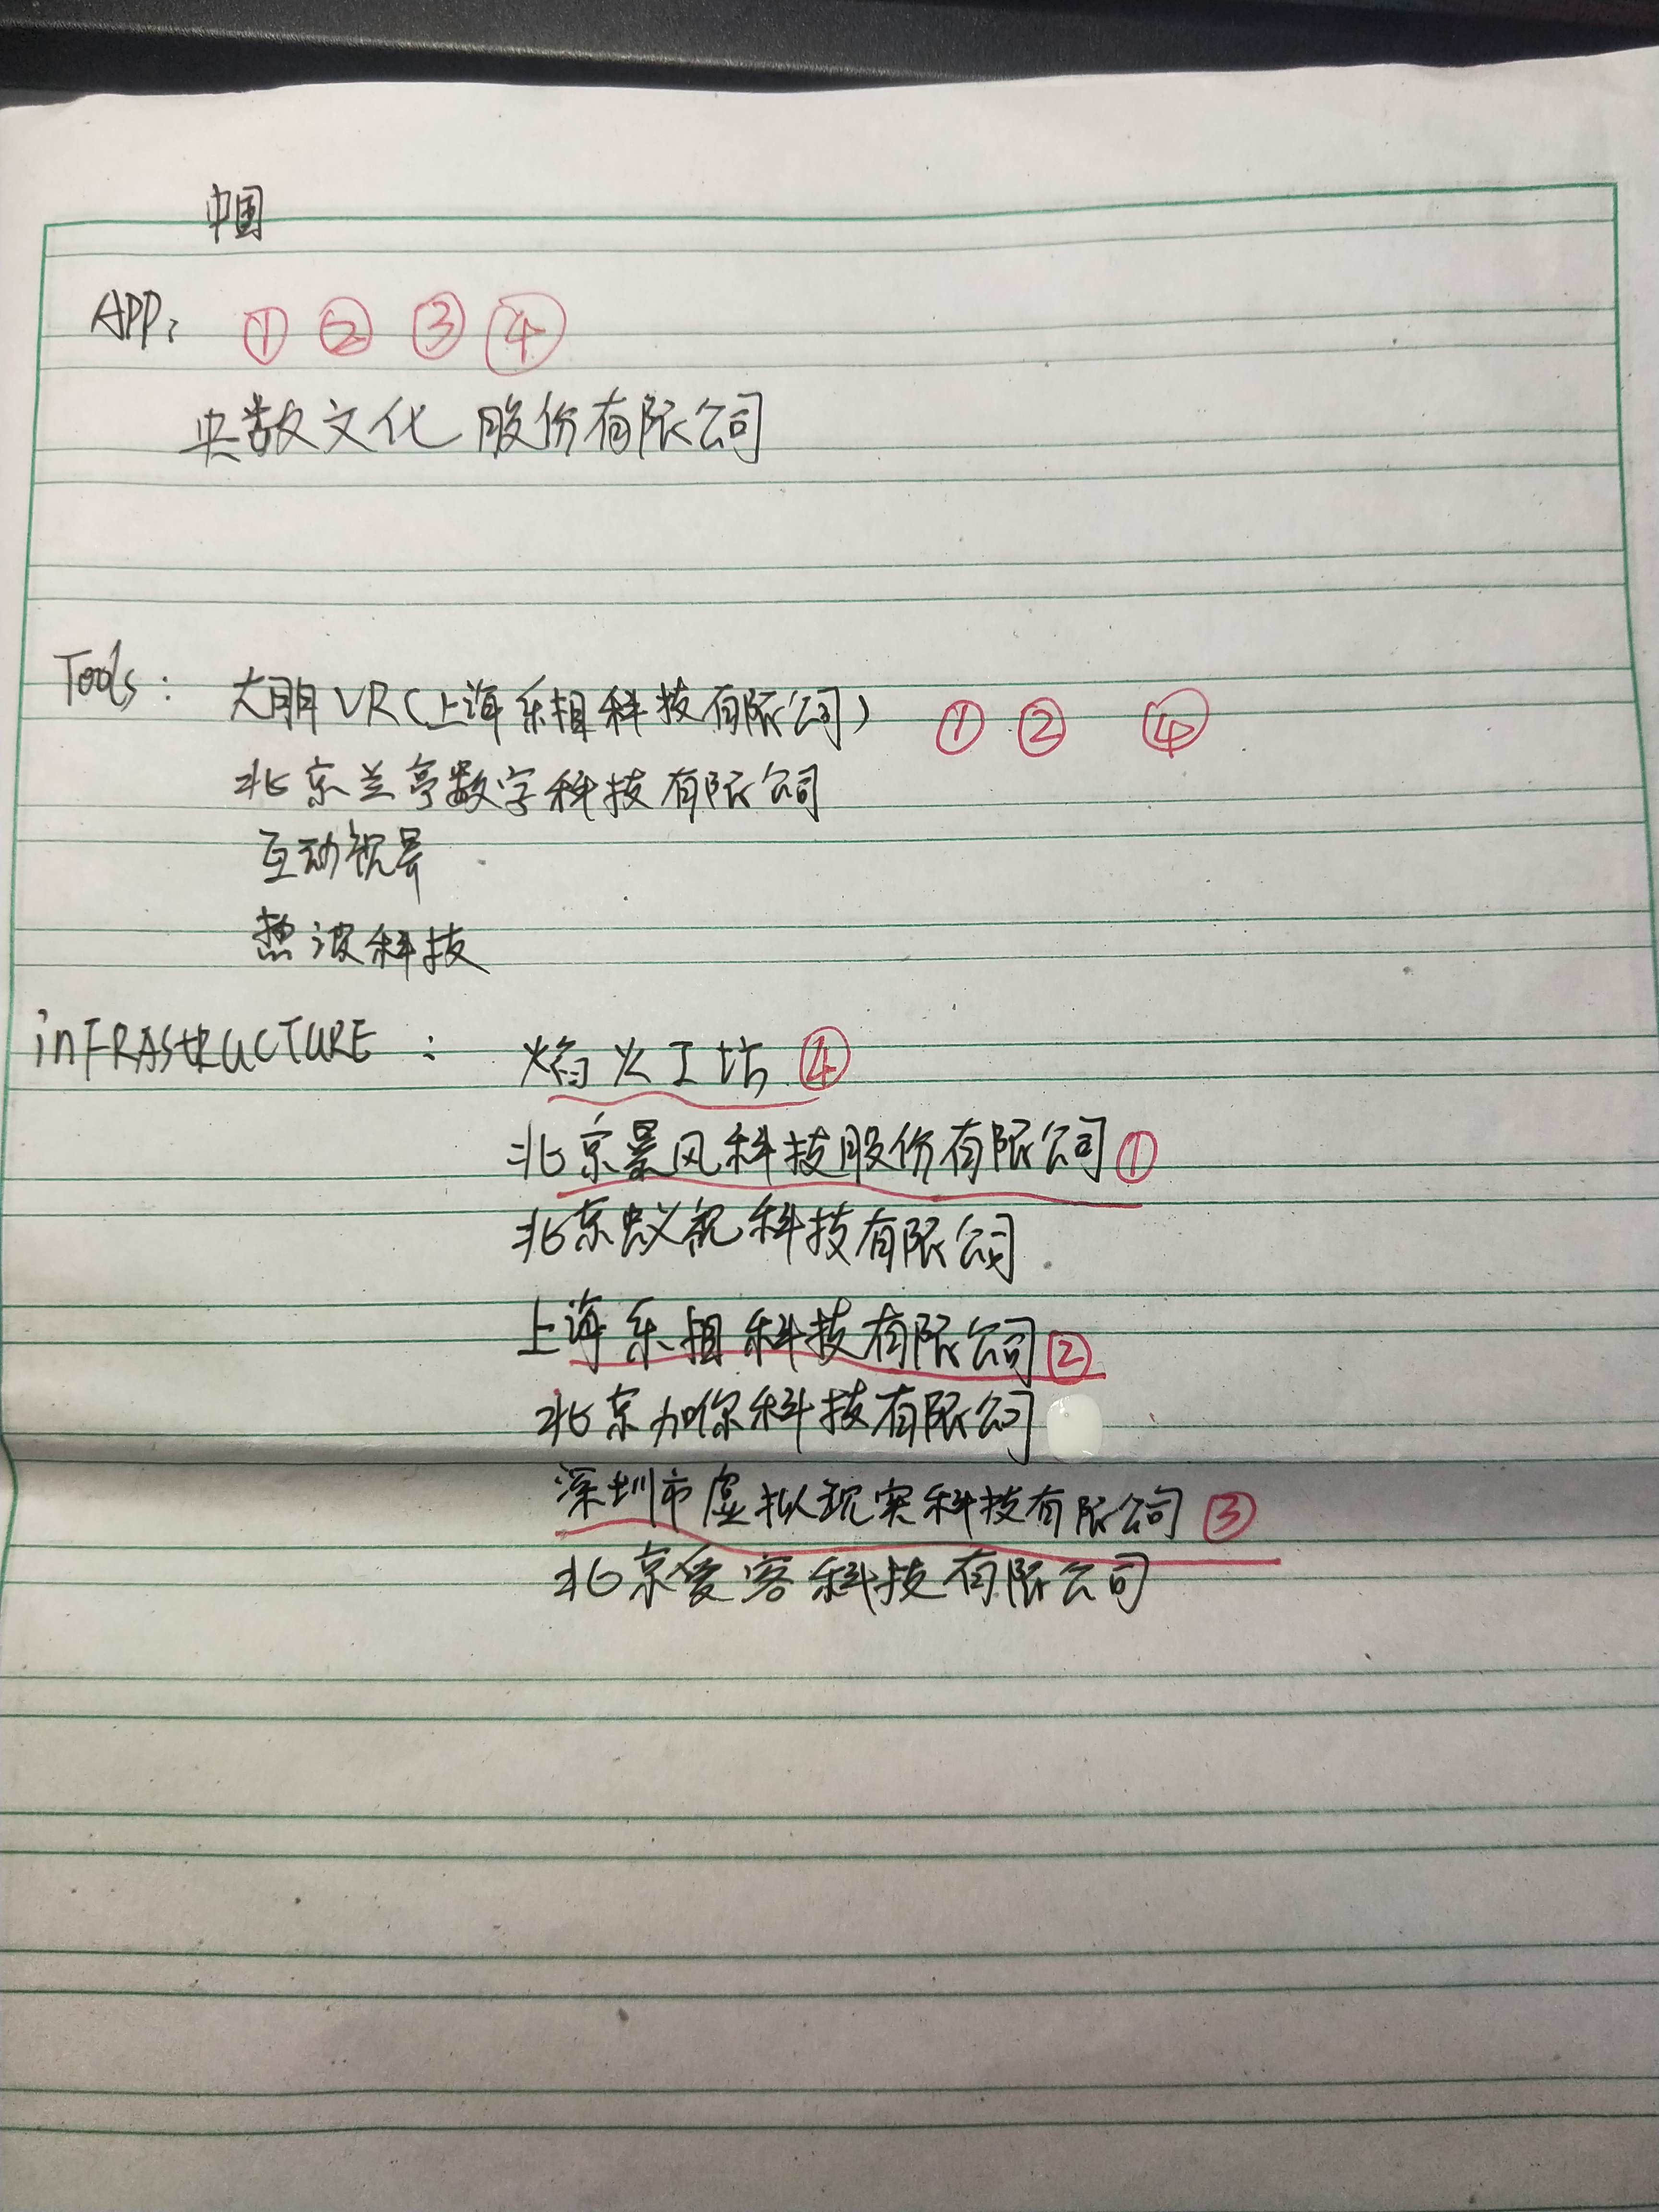 中国
APP: ① ② ③ ④
央数文化股份有限公司
Tools: 大朋VR(上海乐相科技有限公司) ① ② ④
北京兰亭数字科技有限公司
互动视界
热波科技
inFRAStRUCTURE: 焰火工坊 ④
北京暴风科技股份有限公司 ①
北京蚁视科技有限公司
上海乐相科技有限公司 ②
北京加你科技有限公司
深圳市虚拟现实科技有限公司 ③
北京爱客科技有限公司